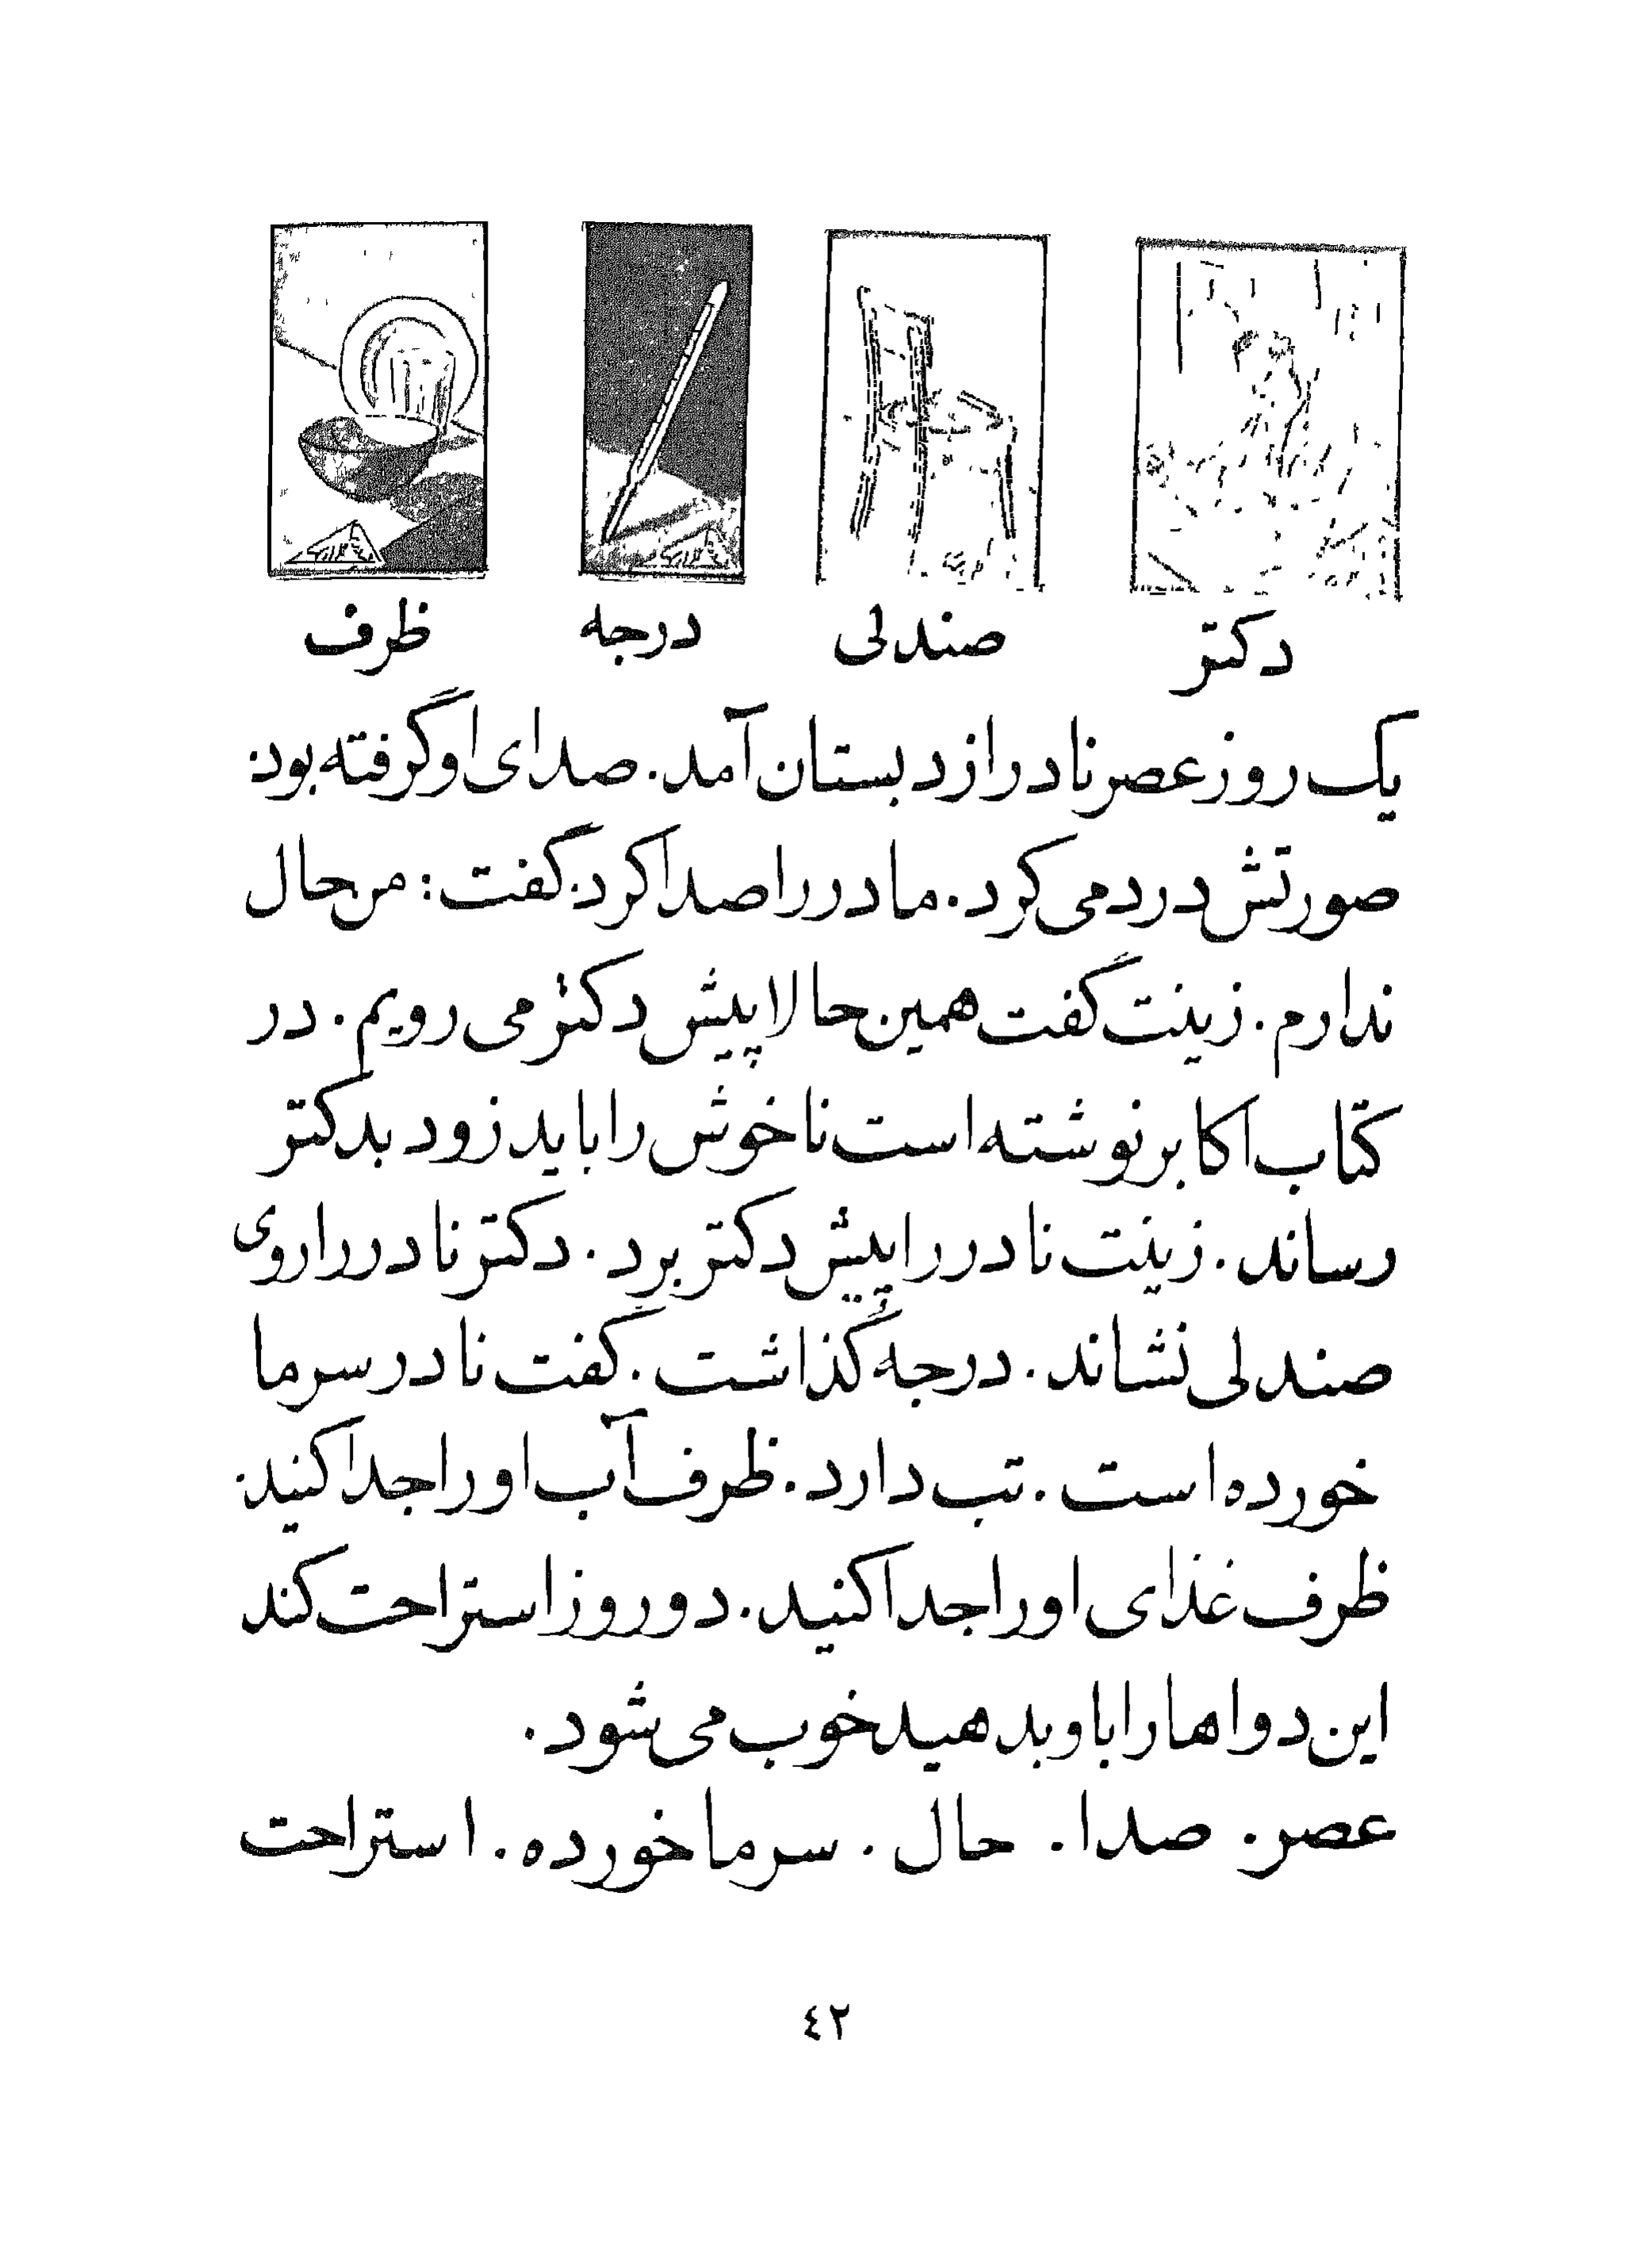 دکتر صندلی درجه ظرف
یک روز عصر نادر از دبستان آمد. صدای او گرفته بود.
صورتش درد می کرد. مادر را صدا کرد. گفت: من حال
ندارم. زینت گفت همین حالا پیش دکتر می رویم. در
کتاب اکابر نوشته است ناخوش را باید زود بدکتر
رساند. زینت نادر را پیش دکتر برد. دکتر نادر را روی
صندلی نشاند. درجه گذاشت. گفت نادر سرما
خورده است. تب دارد. ظرف آب او را جدا کنید.
ظرف غذای او را جدا کنید. دو روز استراحت کند
این دواها را باو بدهید خوب می شود.
عصر. صدا. حال. سرما خورده. استراحت
٤٢